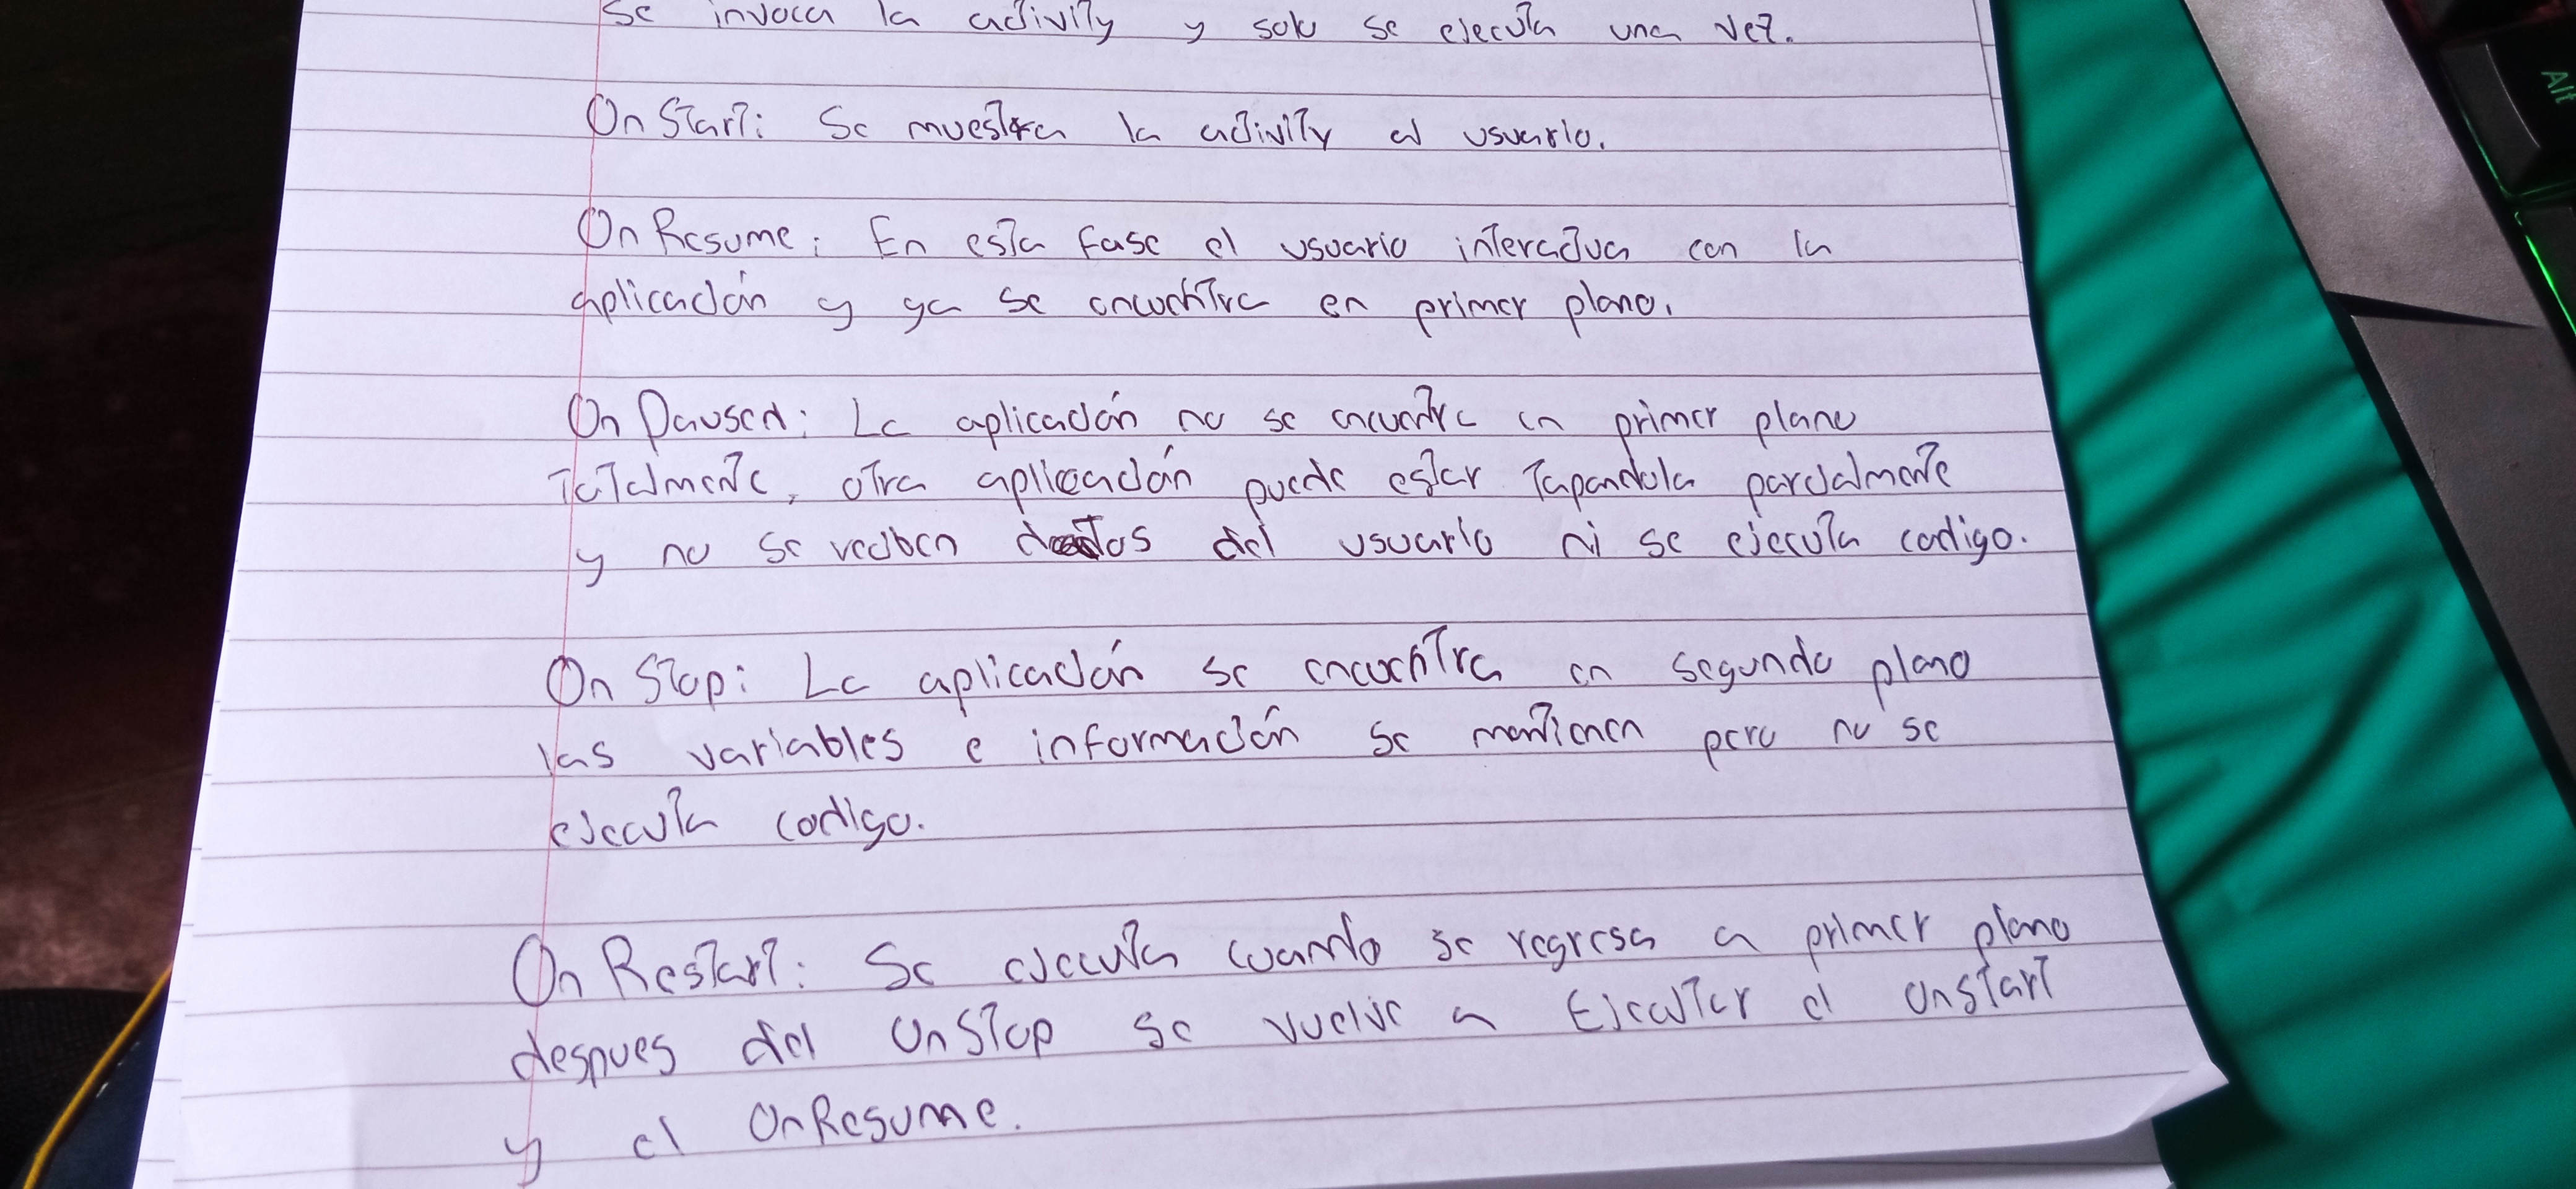 se invoca la activity y solo se ejecuta una vez.
On Start: Se muestra la activity al usuario.
On Resume: En esta fase el usuario interactua con la
aplicación y ya se encuentra en primer plano.
On Paused: La aplicación no se encuentra en primer plano
totalmente, otra aplicación puede estar tapandola parcialmente
y no se reciben datos del usuario ni se ejecuta codigo.
On Stop: La aplicación se encuentra en segundo plano
las variables e información se mantienen pero no se
ejecuta codigo.
On Restart: Se ejecuta cuando se regresa a primer plano
despues del OnStop se vuelve a Ejecutar el Onstart
y el OnResume.
Alt